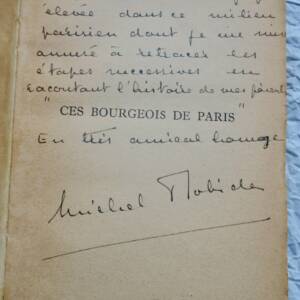 élevée dans ce milieu
parisien dont je me suis
amusé à retracer les
étapes successives en
racontant l'histoire de mes parents
"CES BOURGEOIS DE PARIS"
En très amical hommage
Michel Robida